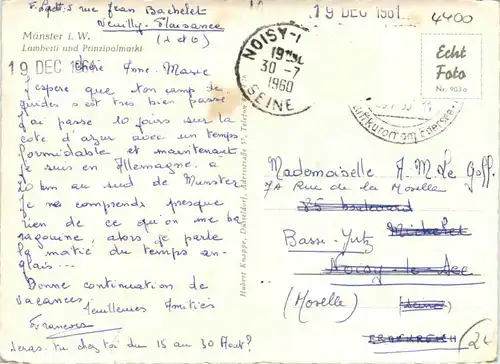 F. Ladt. 5 rue Jean Bachelet
Neuilly-Plaisance
(S et O)
Münster i. W.
Lamberti und Prinzipalmarkt
19 DEC 1961
19 DEC 1961
4400
NOISY-
30-7
1960
SEINE
Echt
Foto
Luftkurort am Edersee
Chère Anne-Marie
J'espère que ton camp de
guides s'est très bien passé
J'ai passé 10 jours sur la
côte d'azur avec un temps
formidable et maintenant
je suis en Allemagne, à
20 km au sud de Munster
Je ne comprends presque
rien de ce qu'on me ba
ragouine, alors je parle
la moitié du temps an-
glais...
Bonne continuation de
vacances.
Meilleures Amitiés
Françoise
Seras-tu chez toi du 15 au 30 Août?
Hubert Knappe, Düsseldorf, Adersstraße 57, Telefon
Mademoiselle A.M. Le Goff
7A Rue de la Moselle
85 boulevard
Michelet
Basse-Yutz
Noisy-le-Sec
(Moselle)
(Seine)
FRANKREICH
2€